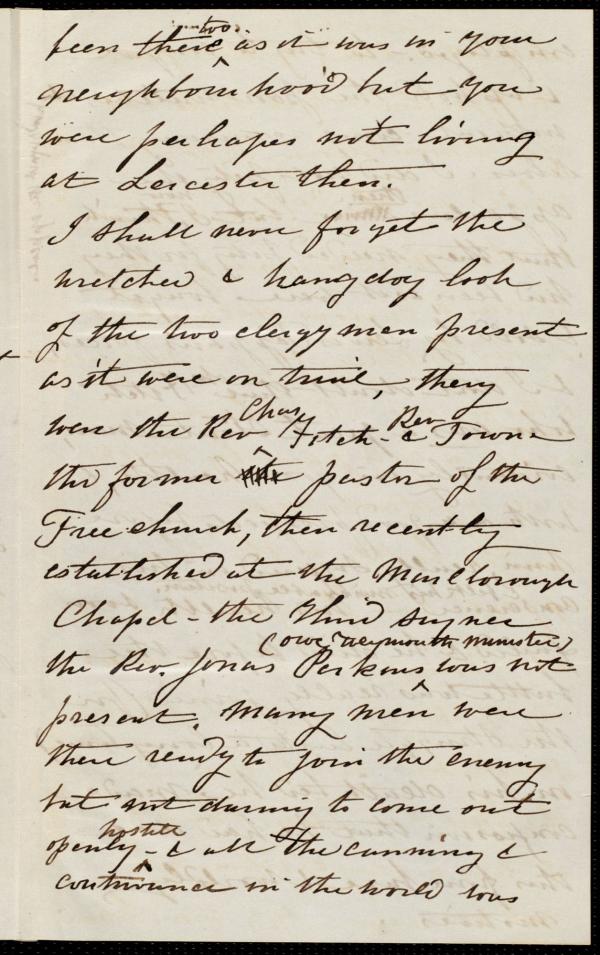 been there too as it was in your
neighbourhood but you
were perhapes not living
at Leicester then.
I shall never forget the
wretched & hangdog look
of the two clergymen present
as it were on trial, they
were the Rev Chas Fitch - & Rev Towne
the former pastor of the
Free church, then recently
established at the Marlborough
Chapel - the third signer
the Rev. Jonas Perkins (our Weymouth minister) was not
present. Many men were
there ready to join the enemy
but not daring to come out
openly hostile - & all the cunning &
contrivance in the world was